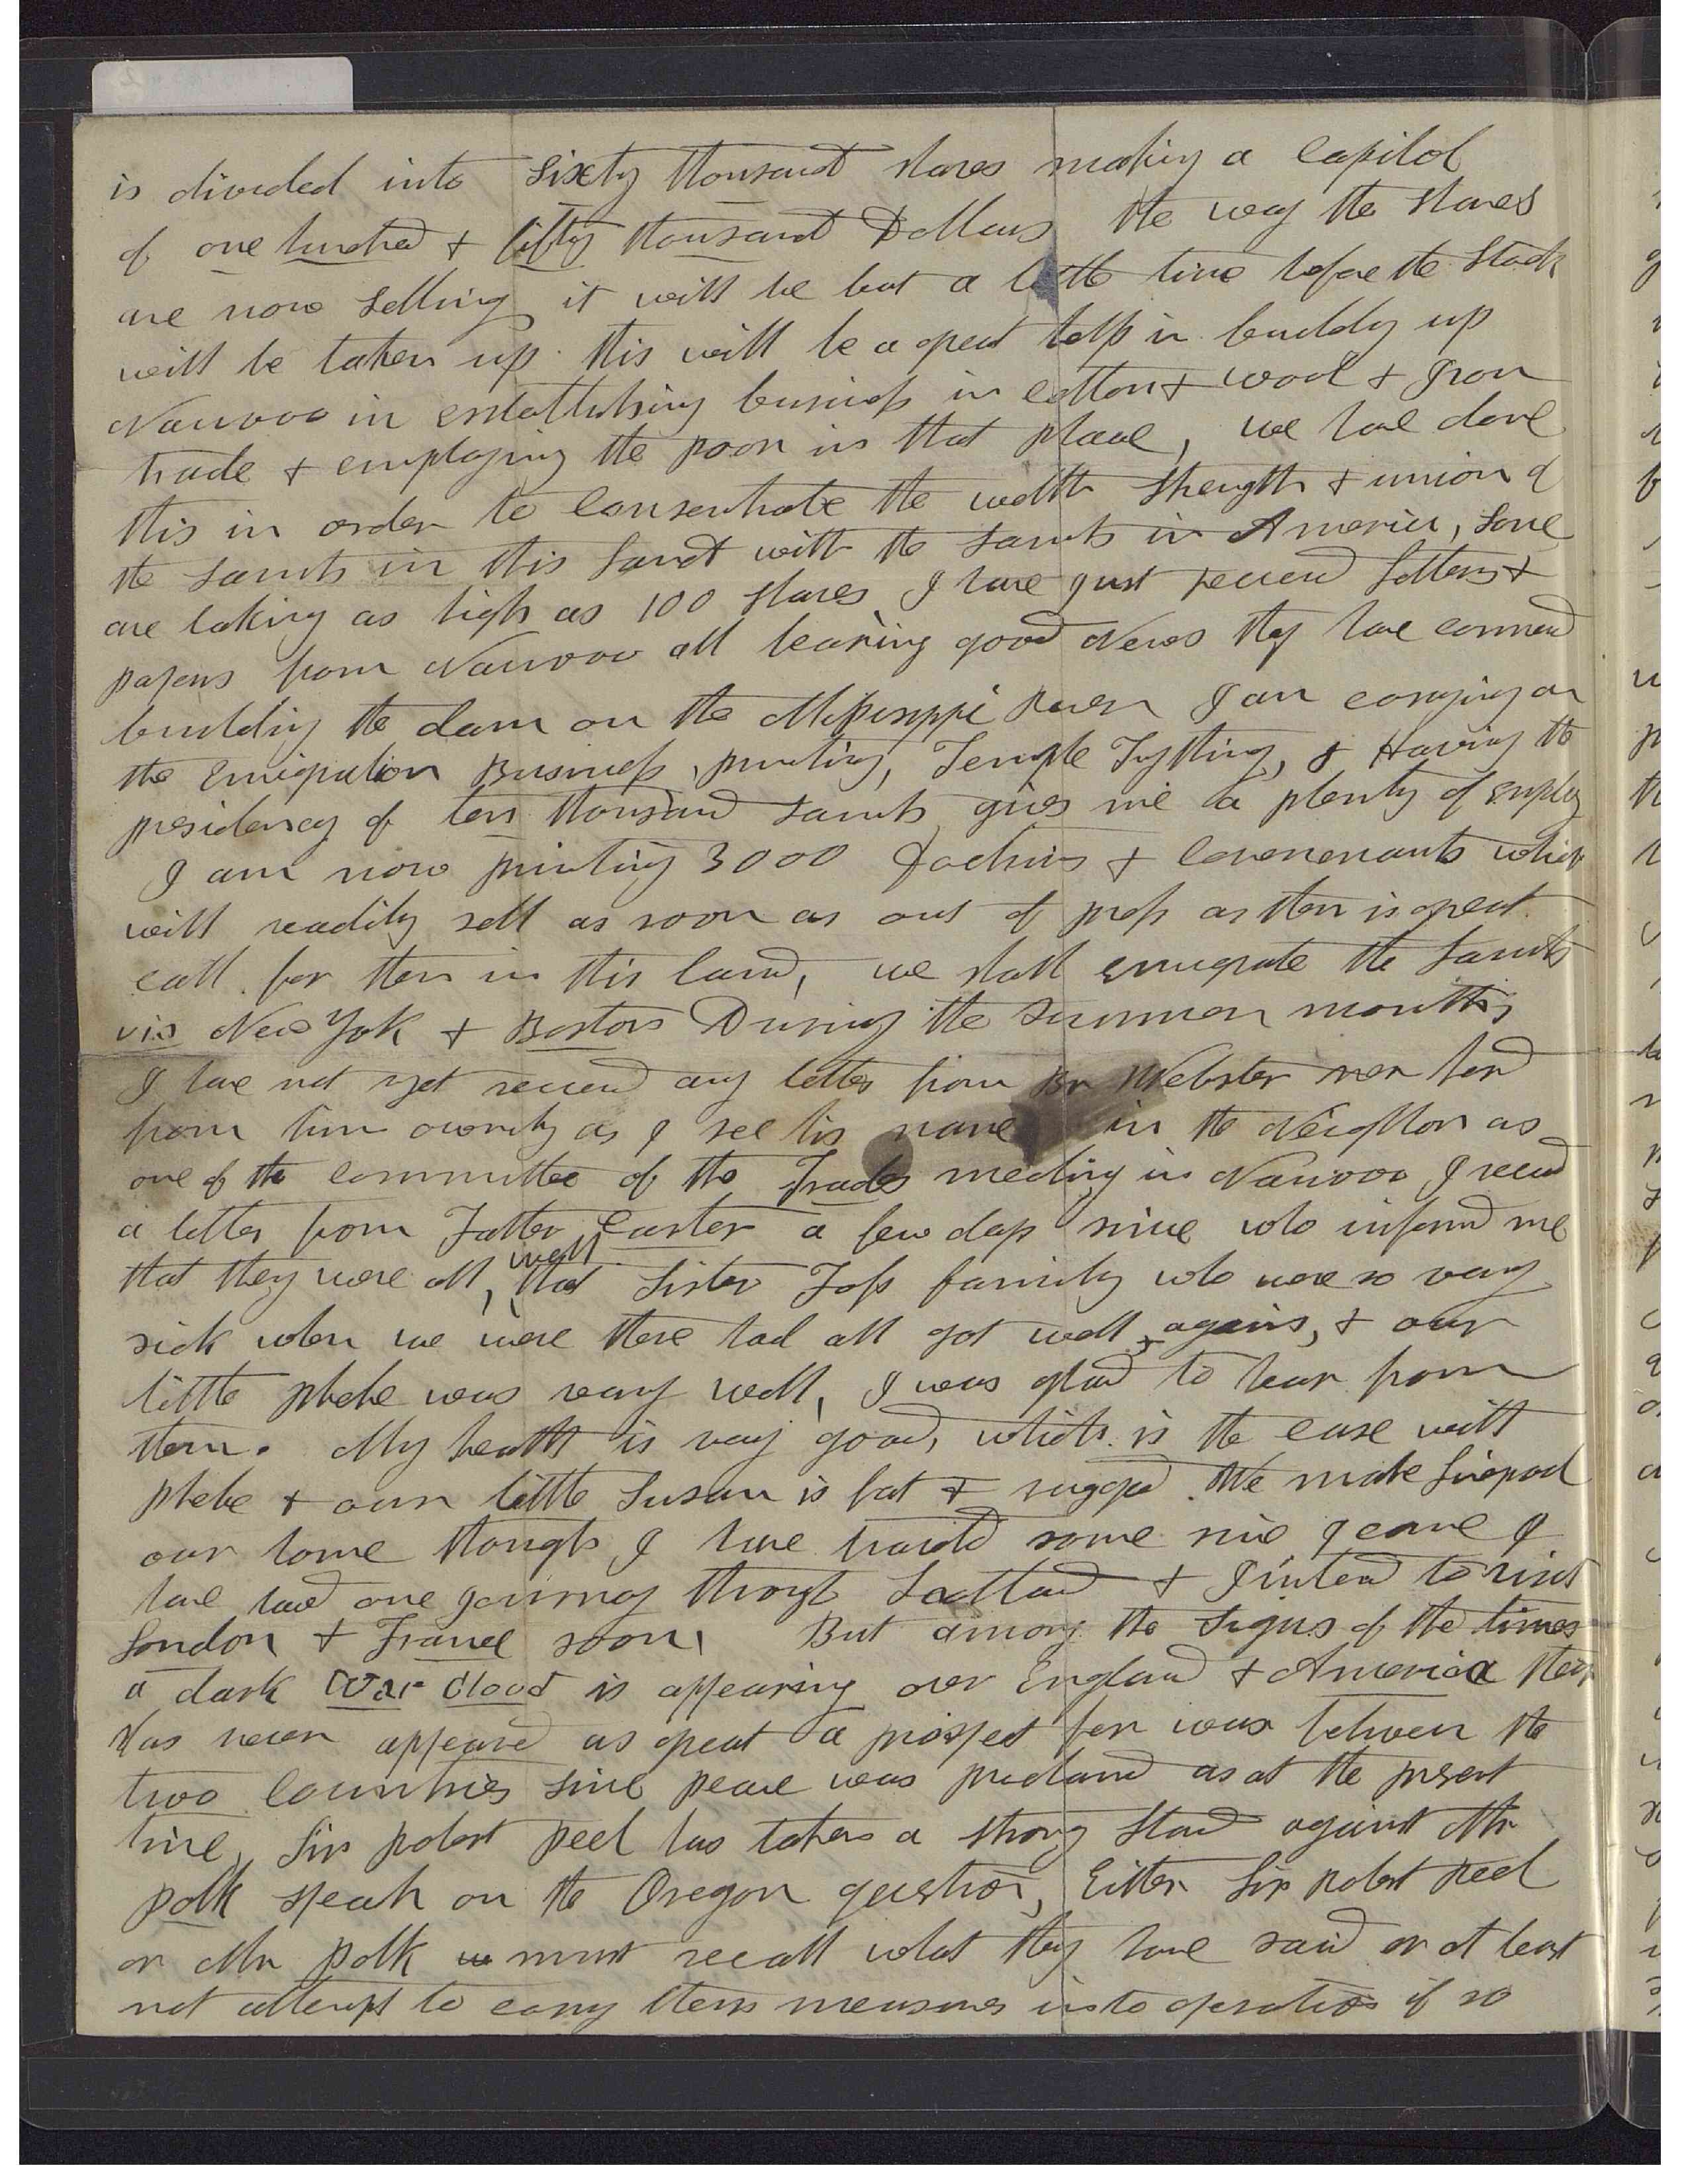 is divided into Sixty thousand shares making a capitol
of one hundred & fifty thousand Dollars the way the shares
are now selling it will be but a little time before the Stock
will be taken up. this will be a great help in building up
Nauvoo in establishing business in cotton & wool & Iron
trade & employing the poor in that place, we have done
this in order to consentrate the welth strength & union of
the Saints in this land with the Saints in America, some
are taking as high as 100 shares I have just received letters &
papers from Nauvoo all bearing good News they have commend
building the dam on the Missisippi River I am carrying on
the Emigration Business, printing, Temple Tything, & Having the
presidency of ten thousand Saints gives me a plenty of employ
I am now printing 3000 Doctrins & Covenenants which
will readily sell as soon as out of press as there is great
call for them in this land, we shall emigrate the Saints
via New York & Boston During the Summer months,
I have not yet received any letter from Br Webster nor herd
from him owonly as I see his name in the Neighbor as
one of the committee of the Trades meeting in Nauvoo I receied
a letter from Father Carter a few days since who informd me
that they were all, well that Sister Foss family who were so very
sick when we were there had all got well, again, & our
little phebe was very well, I was glad to hear from
them. My health is very good, which is the case with
Phebe & our little Susan is fat & rugged. We make Liverpool
our home though I have traveld some since I came I
have had one journey through Scotland & I intend to visit
London & France soon, But among the Signs of the times
a dark War Cloud is appearing over England & America their
Has never appeared as great a prospect for war between the
two Countries since peace was proclamd as at the present
time, Sir Robert Peel has taken a strong stand against Mr
polk speach on the Oregon question, Either Sir Robert Peel
or Mr Polk must recall what they have said or at least
not attempt to carry them measures into operation if so